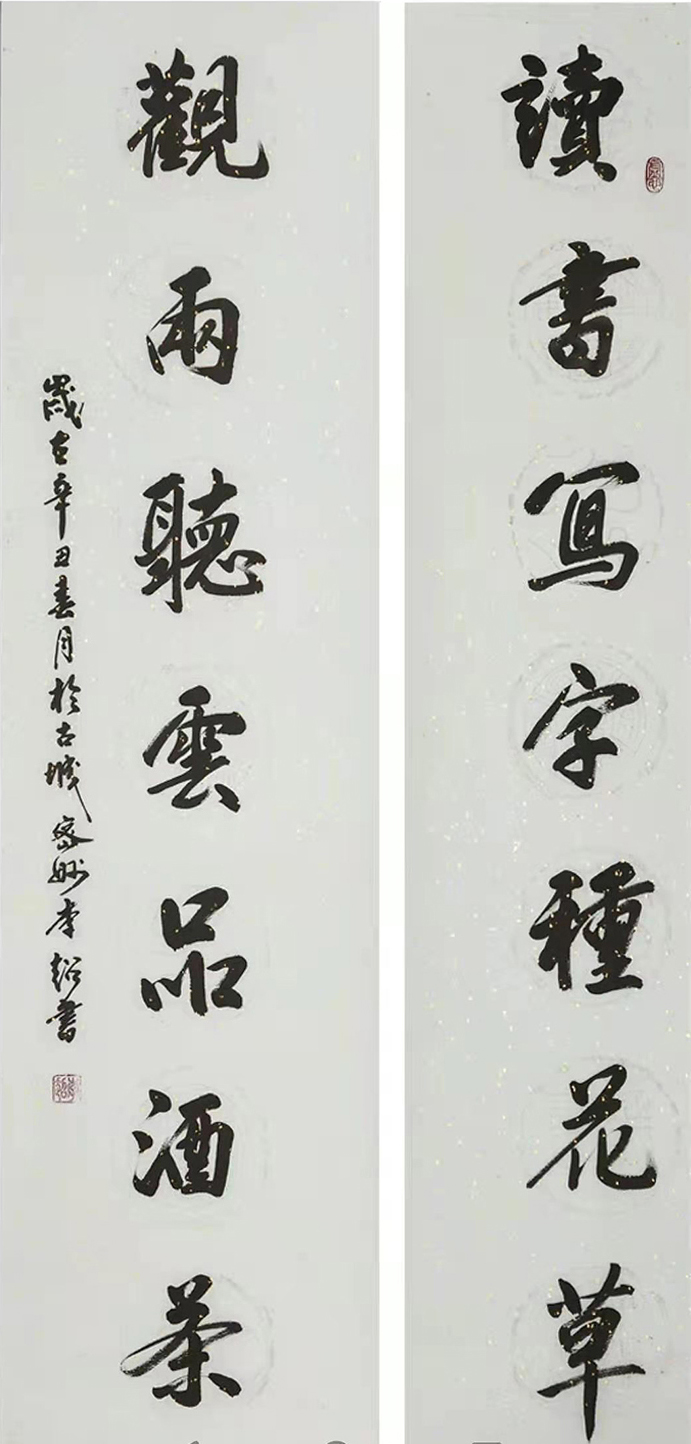 讀書寫字種花草
觀雨聽雲品酒茶
歲在辛丑春月於古城密妙李紹書